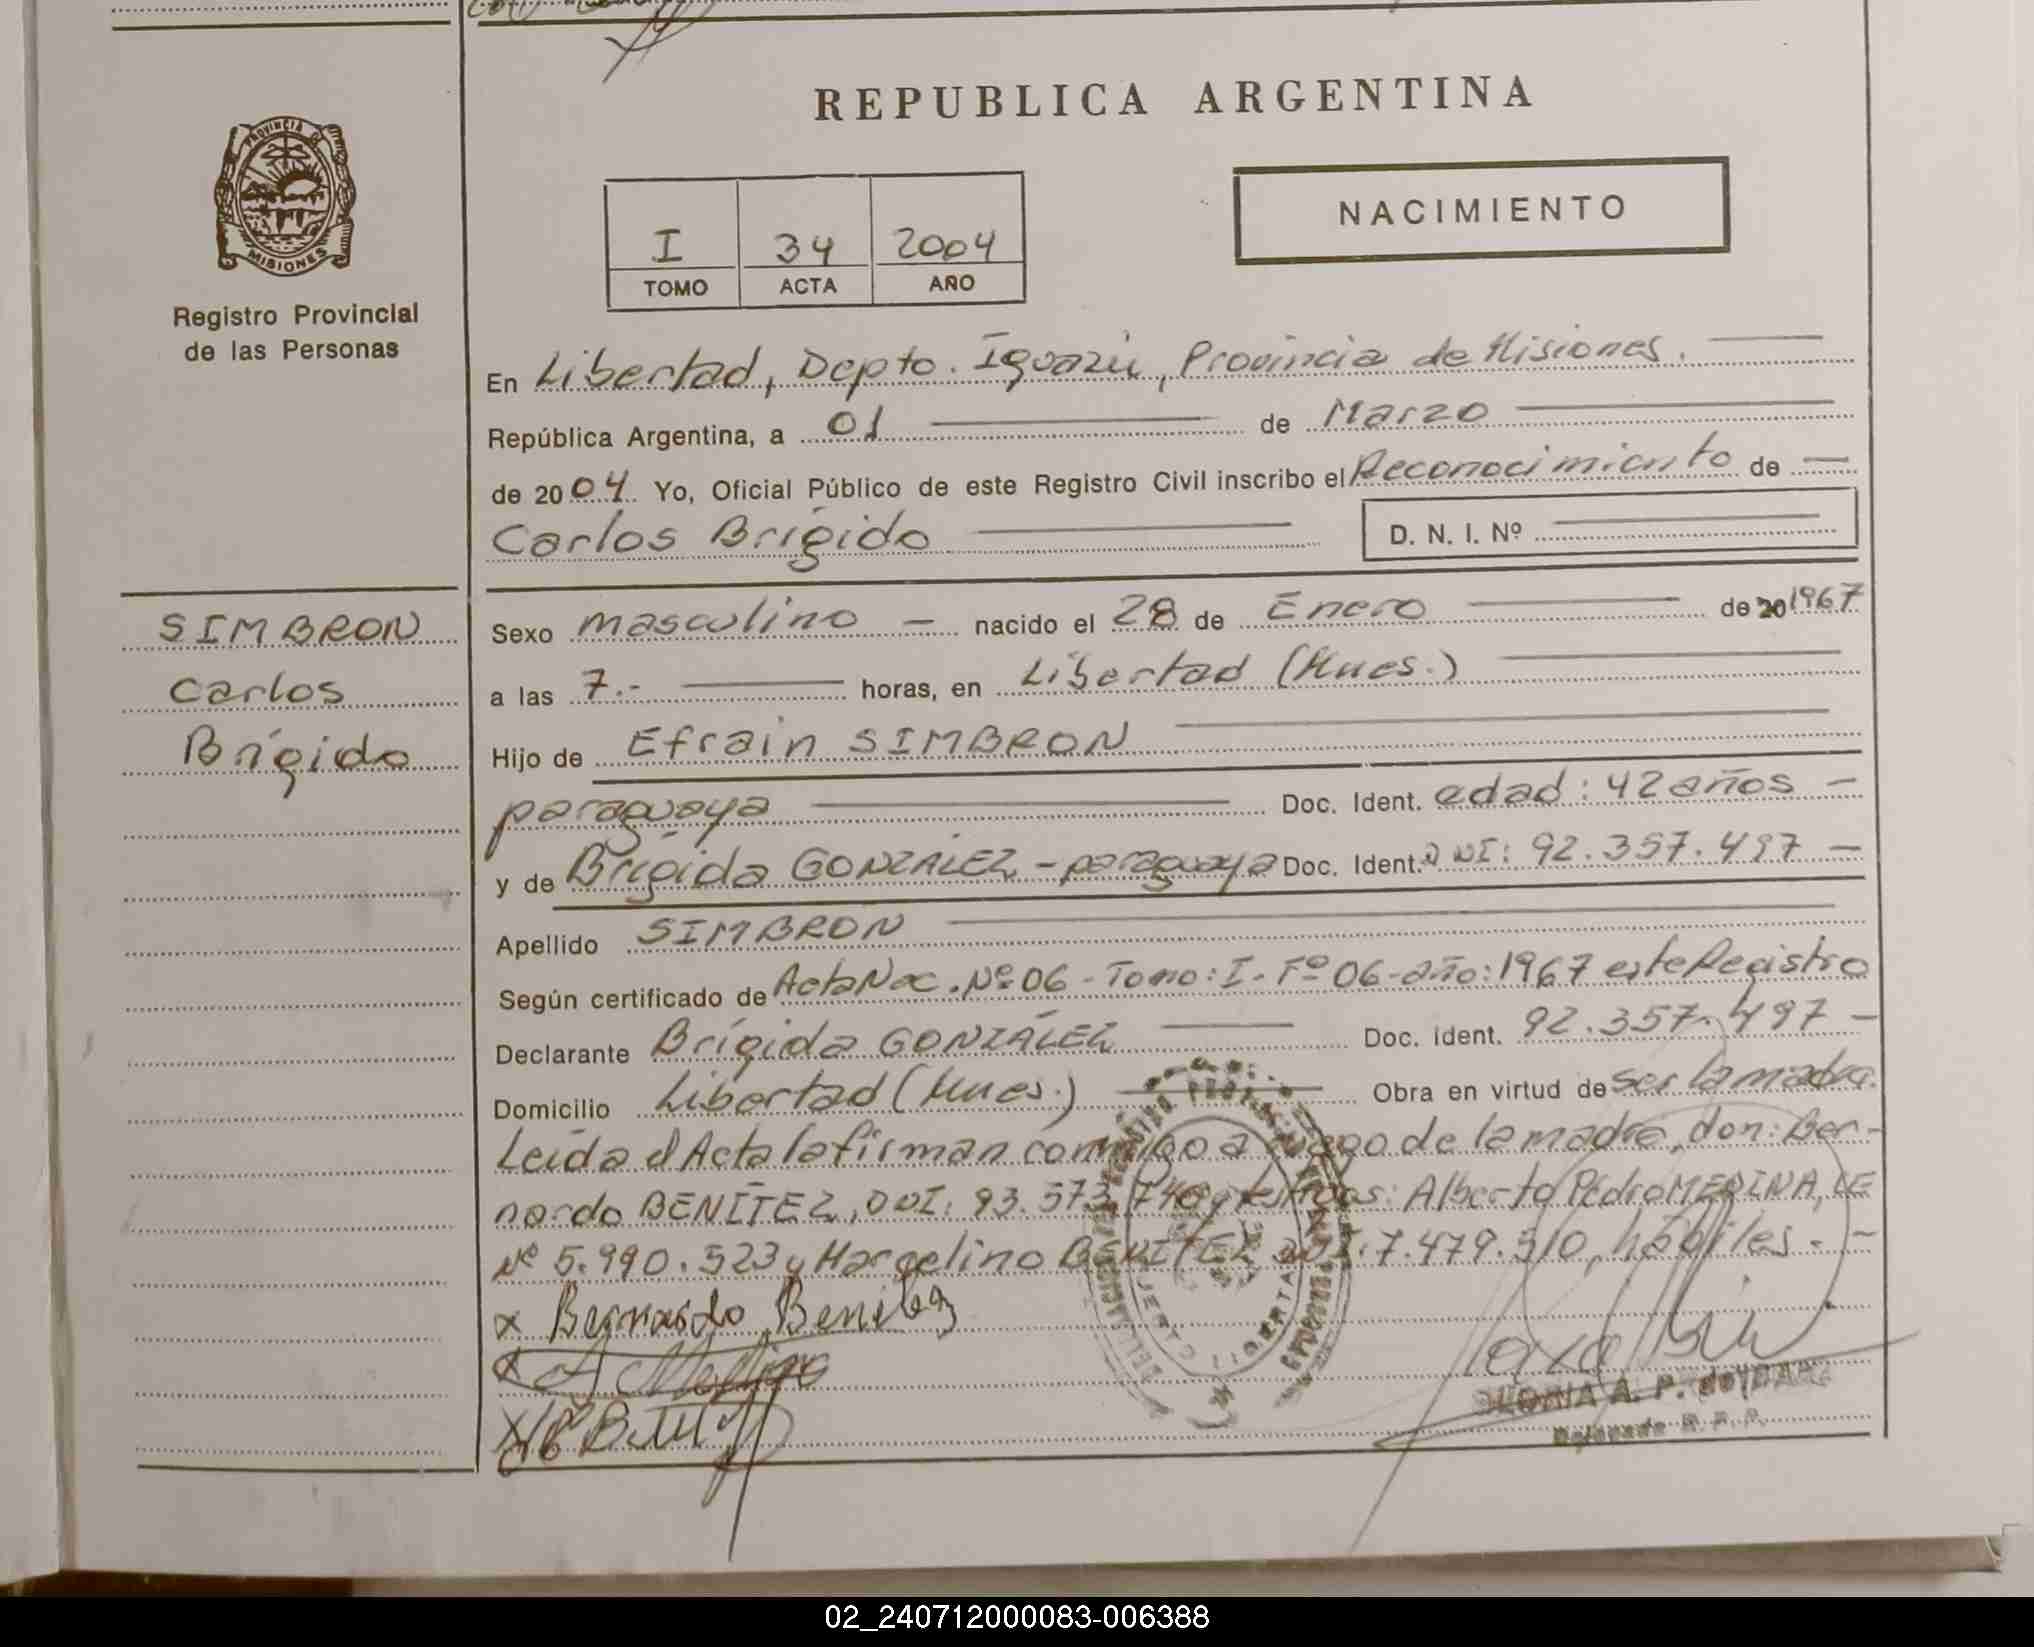 REPUBLICA ARGENTINA
PROVINCIA DE
MISIONES
Registro Provincial
de las Personas
NACIMIENTO
I 34 2004
TOMO ACTA AÑO
En Libertad, Depto. Iguazú, Provincia de Misiones.
República Argentina, a 01 de Marzo
de 2004. Yo, Oficial Público de este Registro Civil inscribo el Reconocimiento de
Carlos Brígido D. N. I. Nº
SIMBRON
Carlos
Brígido
Sexo masculino nacido el 28 de Enero de 20 1967
a las 7.- horas, en Libertad (Mnes.)
Hijo de Efrain SIMBRON
paraguaya Doc. Ident. edad: 42 años
y de Brígida GONZÁLEZ - paraguaya Doc. Ident. DNI: 92.357.497
Apellido SIMBRON
Según certificado de Acta Nac. Nº 06 - Tomo: I - Fº 06 - año: 1967 este Registro
Declarante Brígida GONZÁLEZ Doc. Ident. 92.357.497
Domicilio Libertad (Mnes.) Obra en virtud de ser la madre.
Leída el Acta la firman conmigo a ruego de la madre, don: Ber-
nardo BENÍTEZ, DNI. 93.573.740 y testigos: Alberto Pedro MEDINA, LE
Nº 5.990.523 y Marcelino BENITEZ DNI. 7.479.510, hábiles.
x Bernardo Benitez
A. P. de
Delegada R. P. P.
02_240712000083-006388